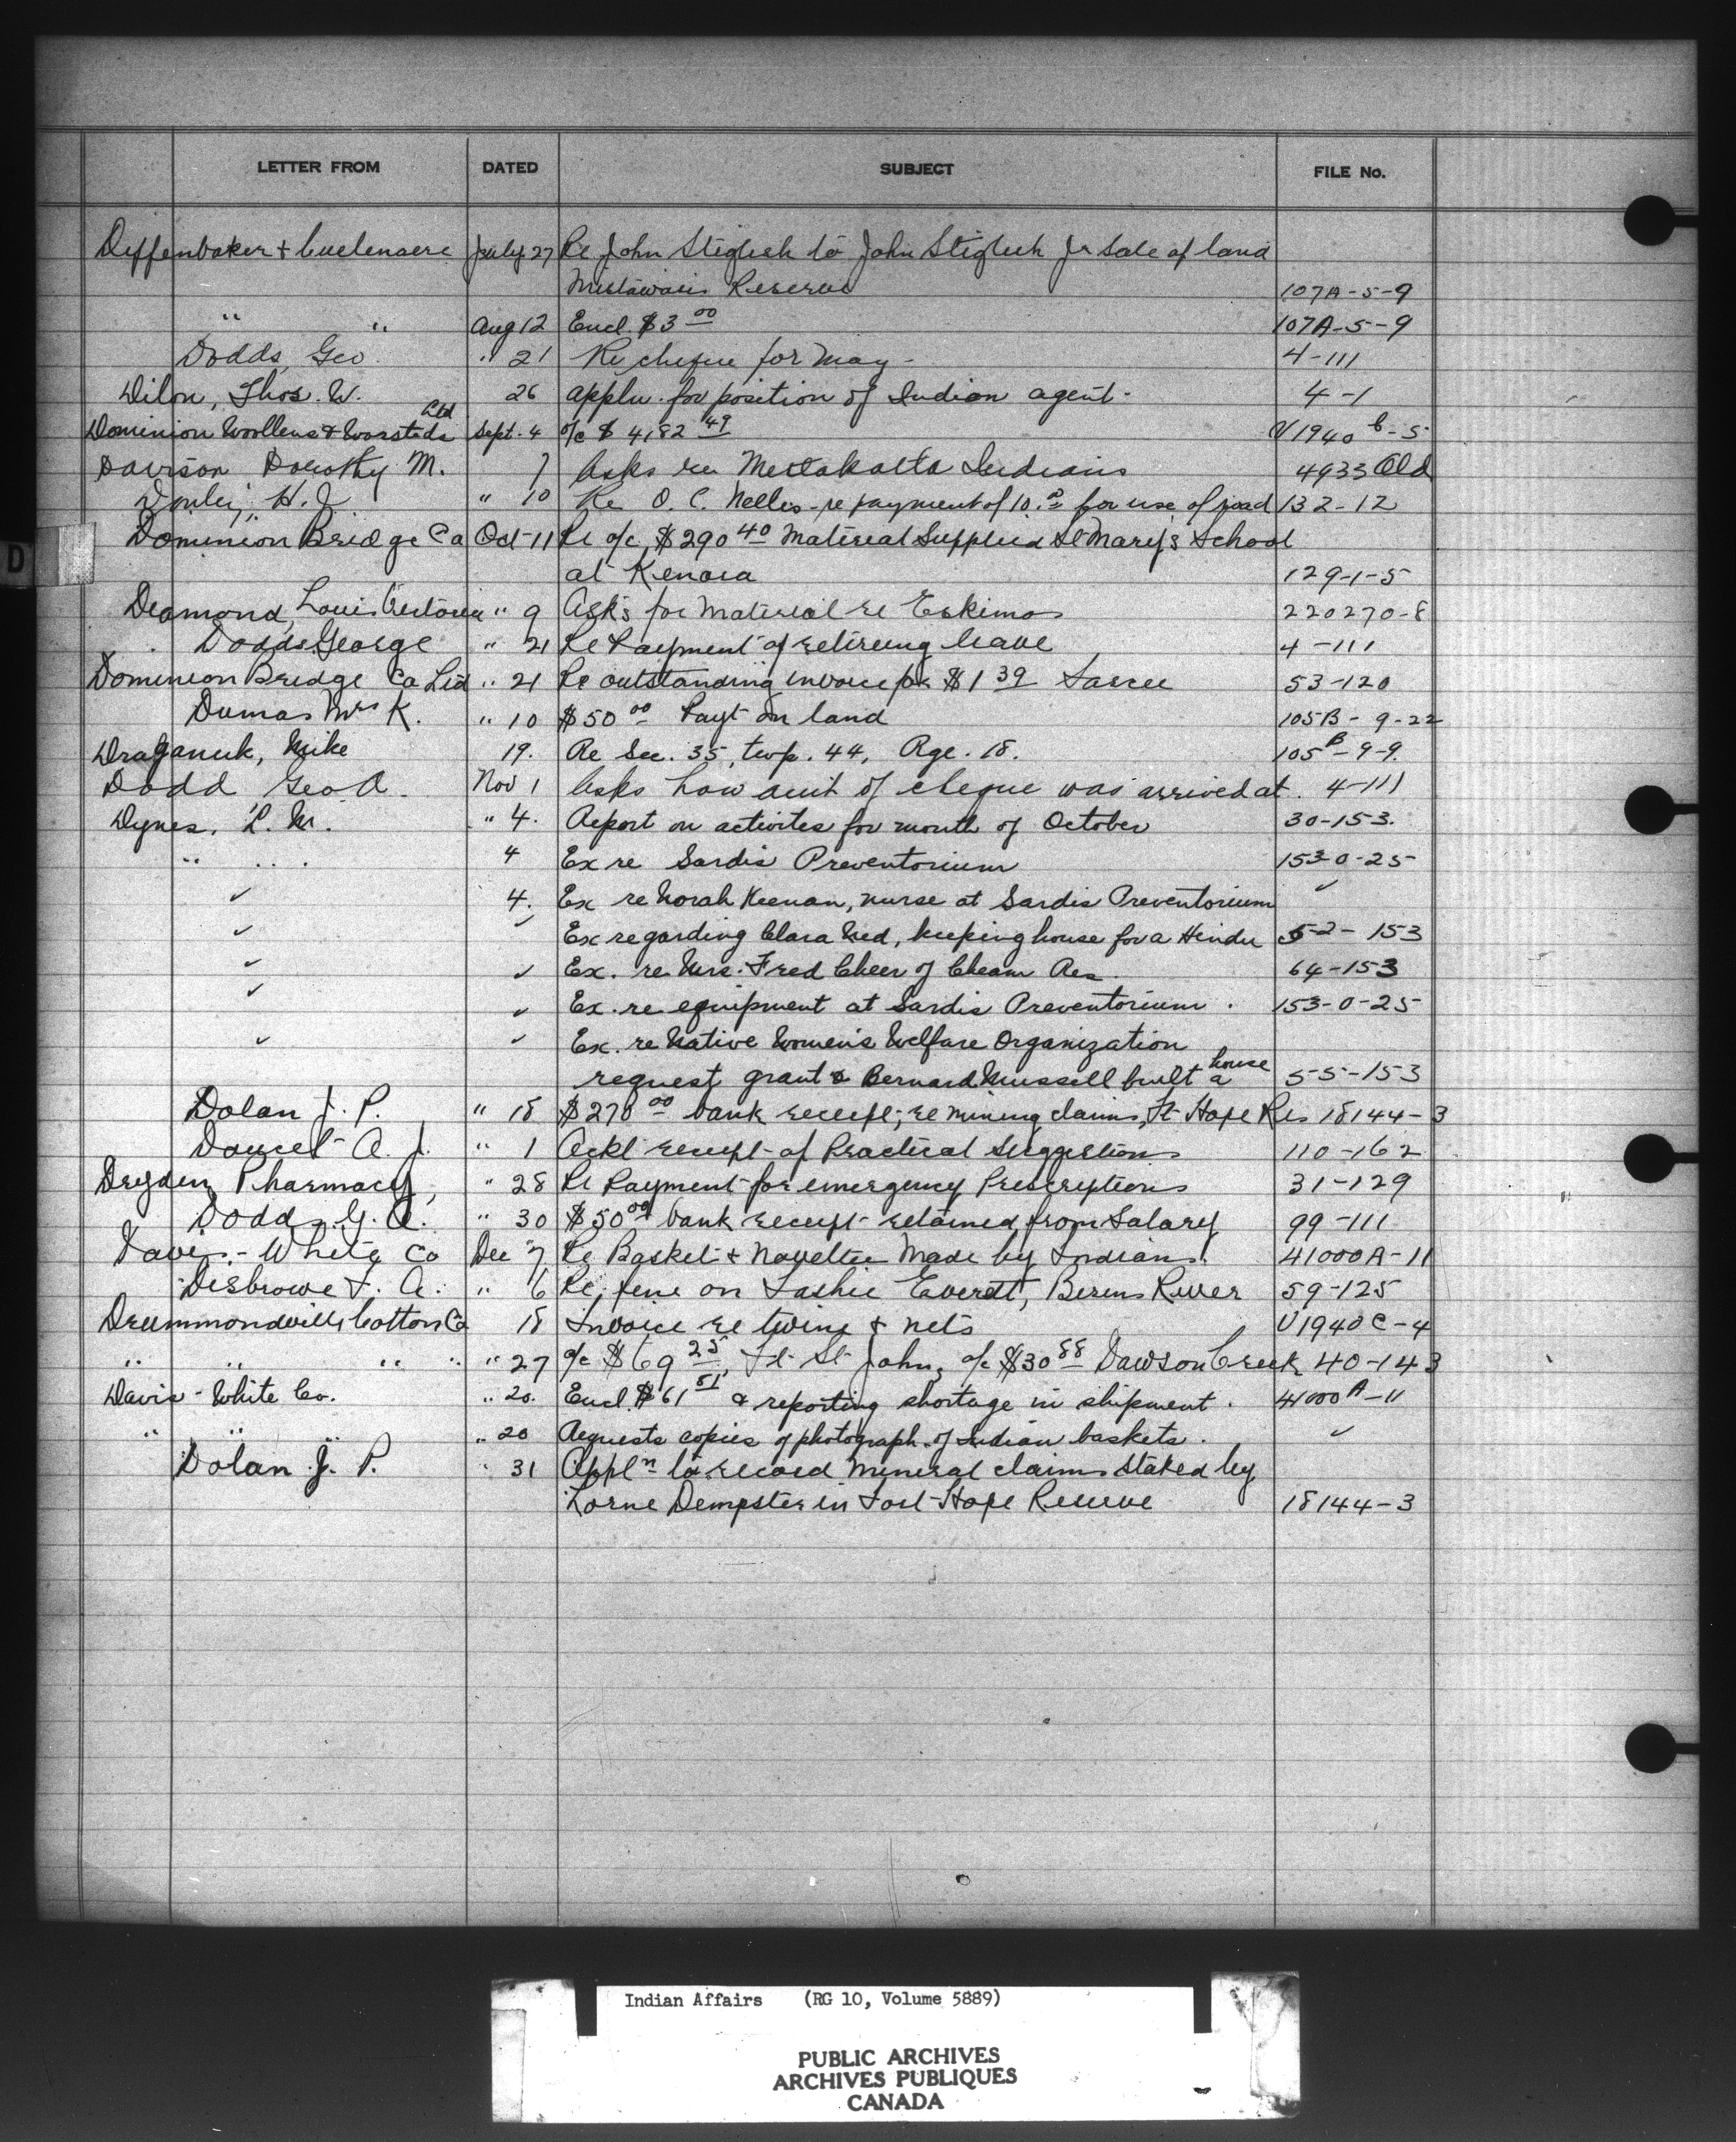 LETTER FROM DATED SUBJECT FILE No.
Diffenbaker & Cuelenaere July 27 Re John Stiglish to John Stiglish Jr Sale of land
Mistawasis Reserve 107A-5-9
" " Aug 12 Encl. $3 00 107A-5-9
Dodds, Geo. " 21 Re cheque for May - 4-111
Dilon, Thos. W. 26 Appln. for position of Indian agent - 4-1
Ltd
Dominion Woollens & Worsteds Sept. 4 a/c $ 4,182 49 V1940 6-5
Davison Dorothy M. 7 Asks re Metlakatla Indians 4933 Old
H. J. " 10 Re O. C. Nelles - re payment of 10. for use of road 132-12
Dominion Bridge Co Oct 11 Re a/c $290 40 Material Supplied St Mary's School
at Kenora 129-1-5
Deamond, Louis " 9 Asks for Material re Eskimos 220270-8
Dodds George " 21 Re Payment of retiring leave 4-111
Dominion Bridge Co Ltd " 21 Re outstanding invoice for $1 39 Sarcee 53-120
Dumas Mrs K. " 10 $50 00 Payt on land 105B - 9-22
Draganuk, Mike 19. Re Sec. 35, twp. 44, Rge. 18. 105 B-9-9.
Dodd Geo A. Nov 1 Asks how amt of cheque was arrived at. 4-111
Dynes, L. M. " 4. Report on activites for month of October 30-153.
" " 4 Ex re Sardis Preventorium 153-0-25
✓ 4. Ex re Norah Keenan, nurse at Sardis Preventorium ✓
✓ ✓ Ex regarding Clara Ned, keeping house for a Hindu 52-153
✓ ✓ Ex. re Mrs. Fred Cheer of Cheam Res. 64-153
✓ ✓ Ex. re equipment at Sardis Preventorium. 153-0-25
✓ ✓ Ex. re Native Women's Welfare Organization
request grant & Bernard Mussell built a house 55-153
Dolan J. P. " 18 $270 00 bank receipt, re mining claims, Ft Hope Res 18144-3
Doucet A. J. " 1 Ackl receipt of Practical Suggestions 110-162
Dryden Pharmacy, " 28 Re Payment for emergency Prescriptions 31-129
Dodds G. A. " 30 $50 00 bank receipt retained from Salary 99-111
Davis - White Co Dec 7 Re Basket & Novelties Made by Indians 41000A-11
Disbrowe F. A. " 6 Re fine on Everett, Berens River 59-125
Drummondville Cotton Co 18 Invoice re twine & nets V1940C-4
" " " " " 27 a/c $69 25 Ft St John, a/c $30 88 Dawson Creek 40-143
Davis - White Co. " 20. Encl. $61 51 & reporting shortage in shipment. 41000 A-11
" " " " 20 Requests copies of photograph of Indian baskets. ✓
Dolan J. P. " 31 Appln to record Mineral claims staked by
Lorne Dempster in Fort Hope Reserve 18144-3
D
Indian Affairs (RG 10, Volume 5889)
PUBLIC ARCHIVES
ARCHIVES PUBLIQUES
CANADA